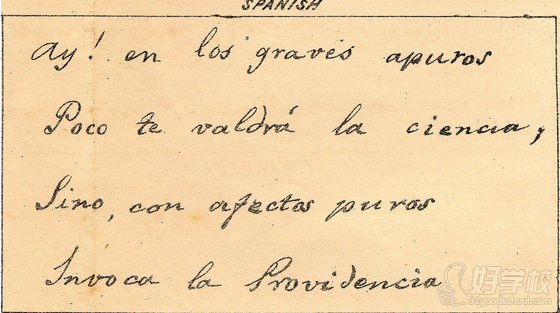 SPANISH
Ay! en los graves apuros
Poco te valdrá la ciencia,
Sino, con afectos puros
Invoca la Providencia
好学校
91goodschool.com